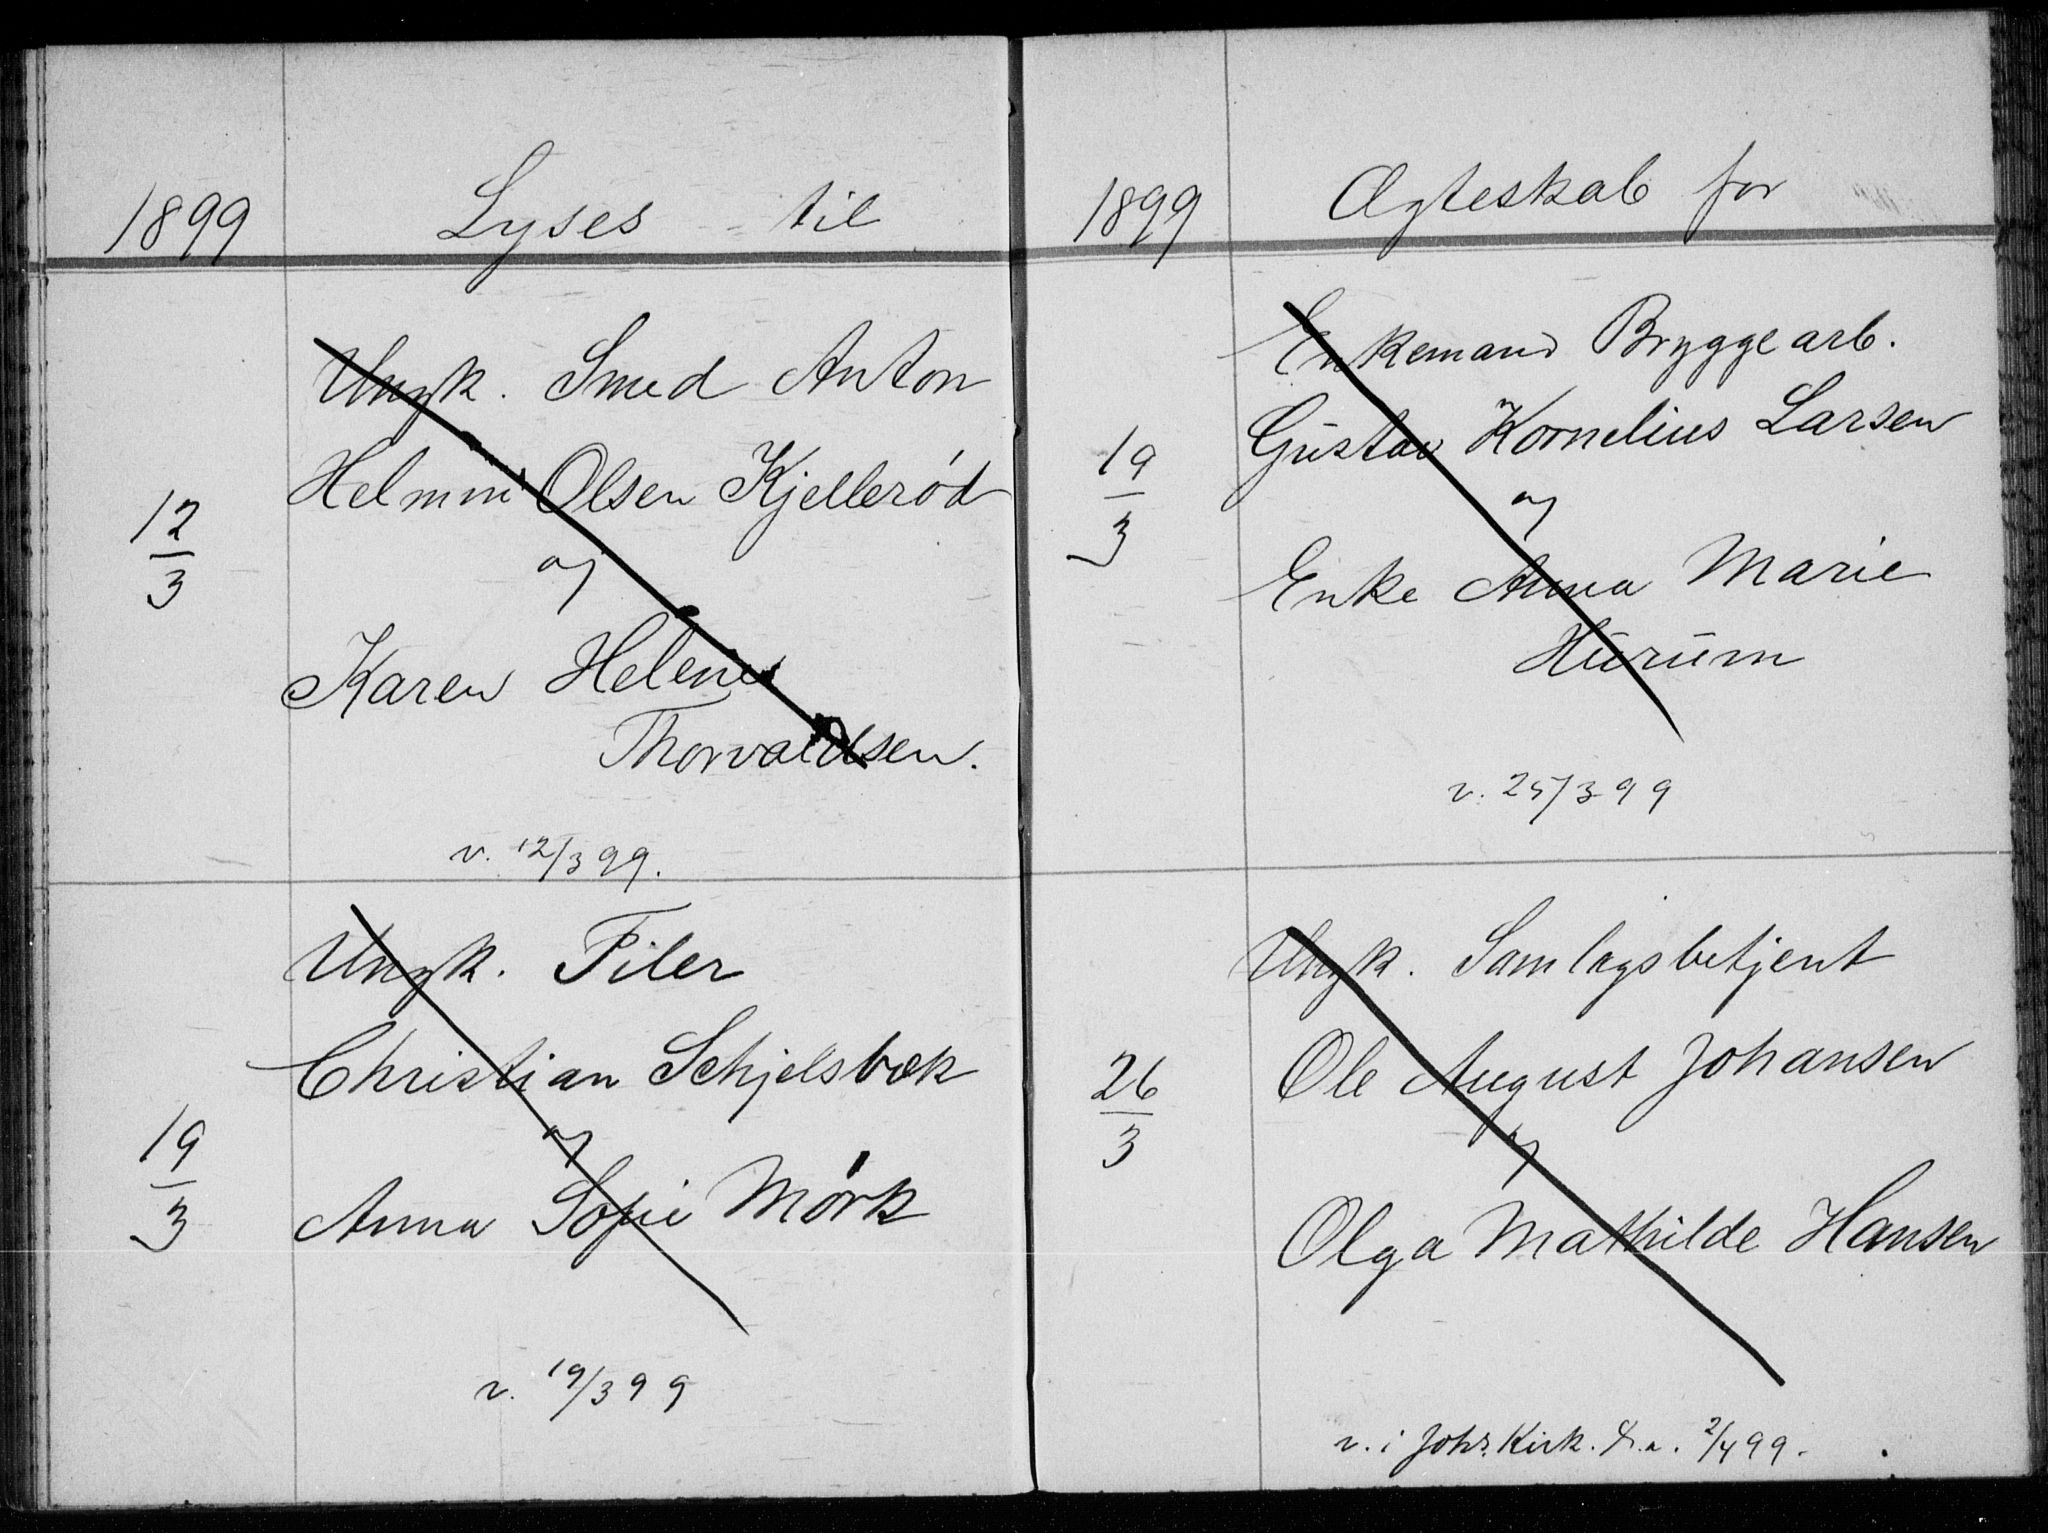 1899 Lyses til
12/3
Ungk. Smed Anton
Helmin Olsen Kjellerød
og
Karen Helene
Thorvaldsen.
v. 12/3 99.
19/3
Ungk. Filer
Christian Schjelsbæk
og
Anna Sofie Mørk
v. 19/3 99
1899 Ægteskab for
19/3
Enkemand Bryggearb.
Gustav Kornelius Larsen
og
Enke Anna Marie
Hurum
v. 25/3 99
26/3
Ungk. Samlagsbetjent
Ole August Johansen
og
Olga Mathilde Hansen
v. i Johs. Kirk. 2/4 99.